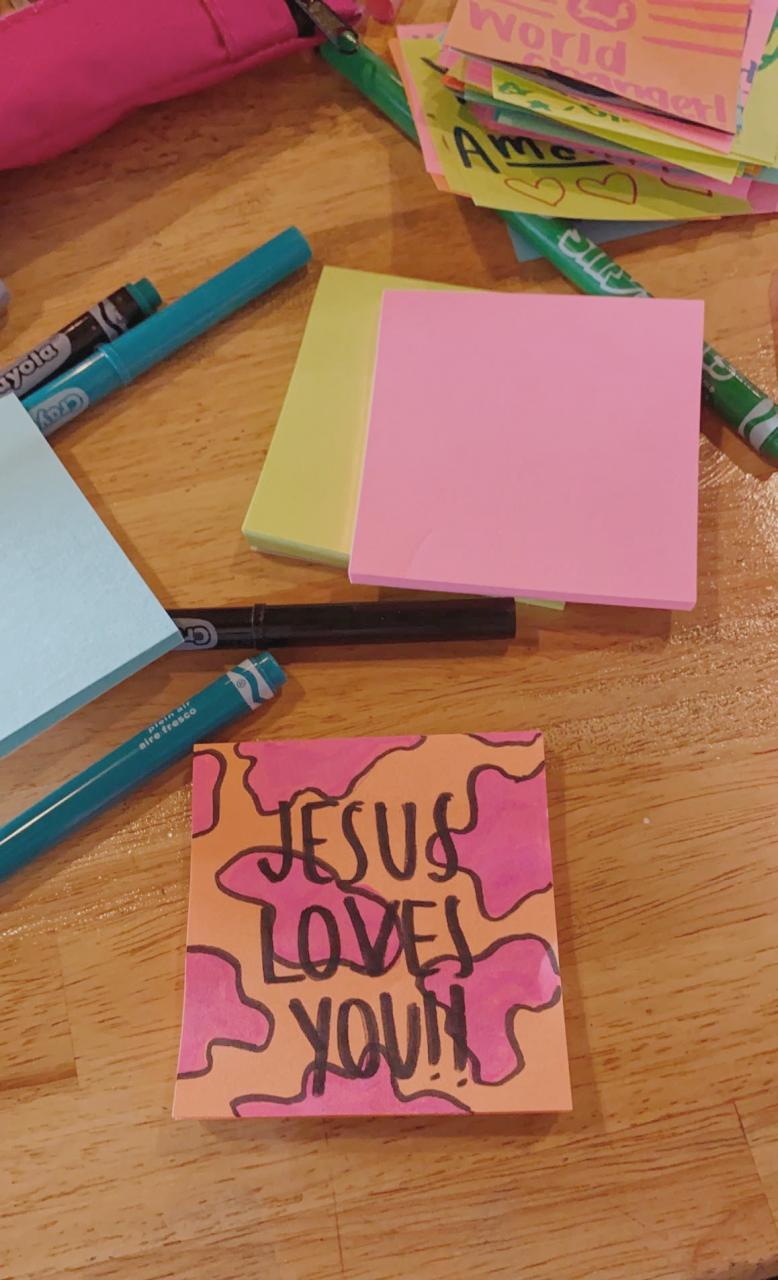 World
changer!
Am
Crayola
plein air
aire fresco
JESUS
LOVES
YOU!!